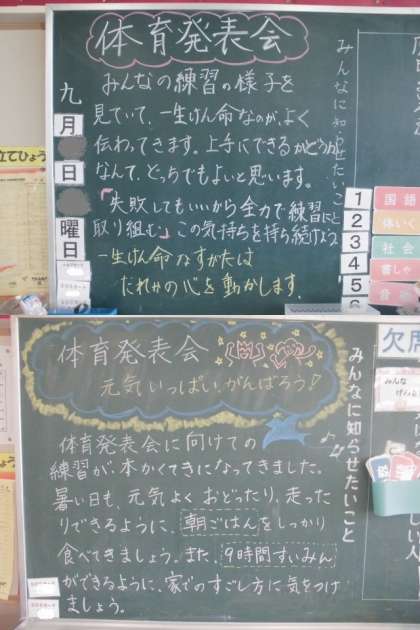 体育発表会
みんなに知らせたいこと
みんなの練習の様子を
見ていて、一生けん命なのが、よく
伝わってきます。上手にできるかどうか
なんて、どっちでもよいと思います。
「失敗してもいいから全力で練習に
取り組む」この気持ちを持ち続けよう
一生けん命なすがたは
だれかの心を動かします。
九
月
日
曜
日
1 国語
2 体いく
3 社会
4 書しゃ
5 音楽
6
立てひょう
体育発表会
元気いっぱいがんばろう♪
みんなに知らせたいこと
体育発表会に向けての
練習が、本かくてきになってきました。
暑い日も、元気よくおどったり、走った
りできるように、朝ごはんをしっかり
食べてきましょう。また、9時間すいみん
ができるように、家でのすごし方に気をつけ
ましょう。
欠席
みんな
ひょう